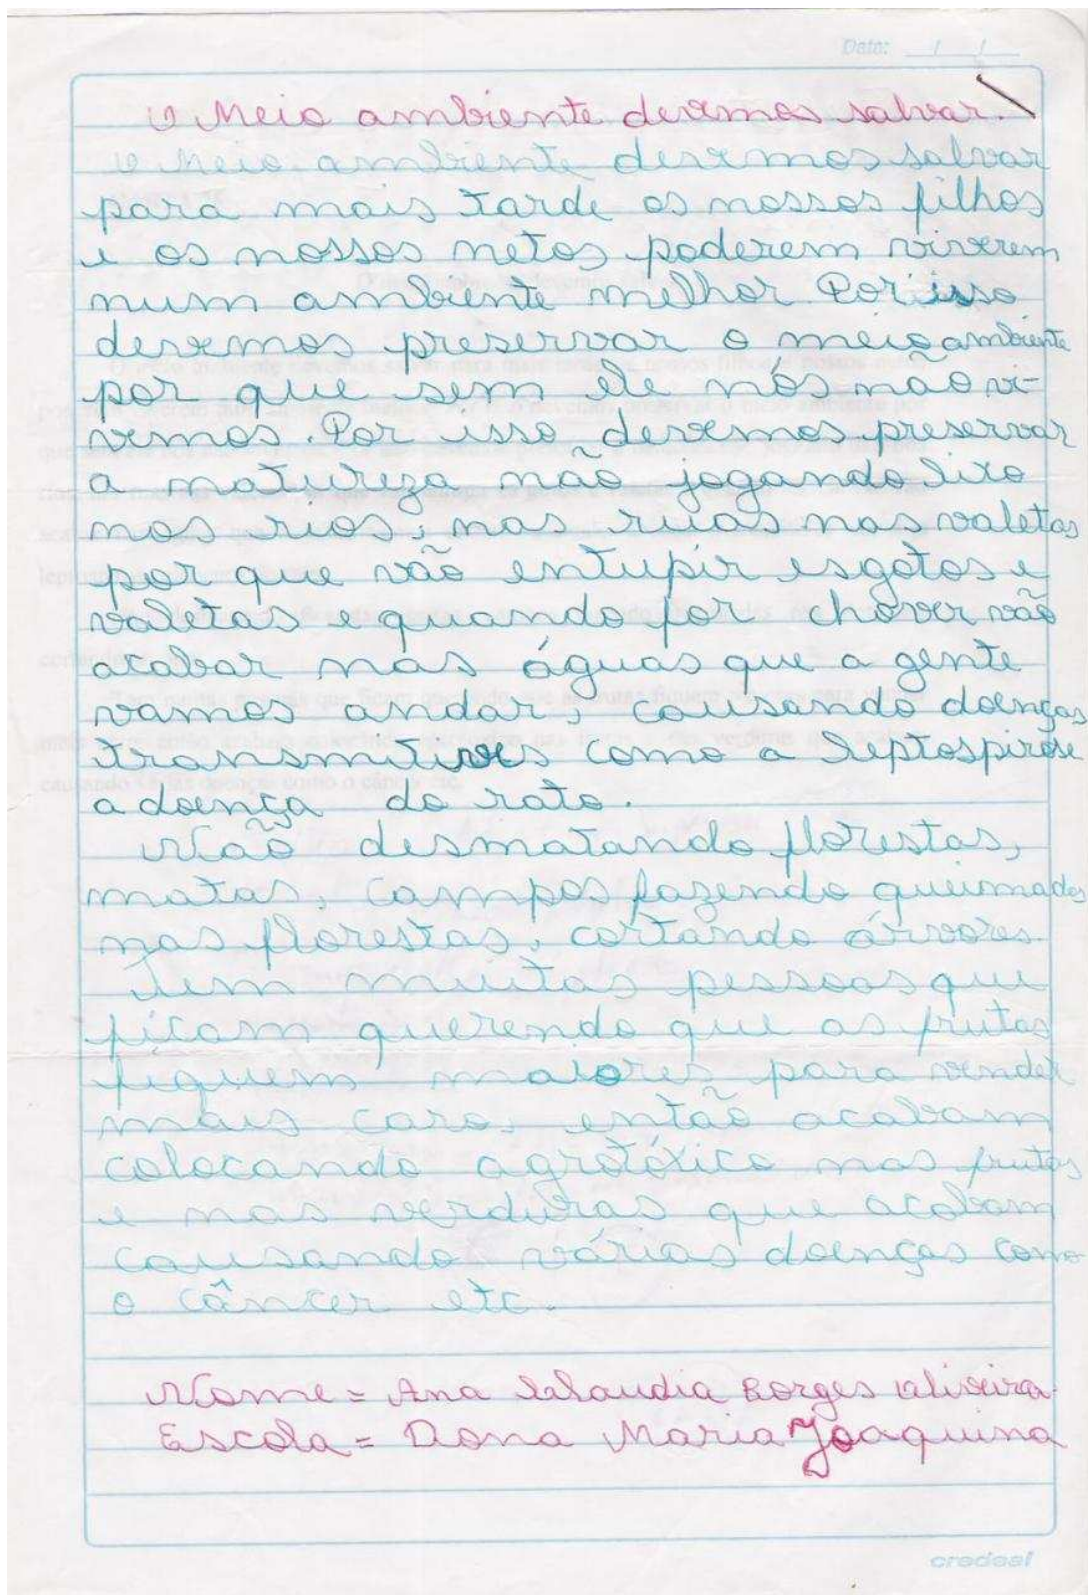 Data: / /
O Meio ambiente devemos salvar.
O Meio ambiente devemos salvar
para mais tarde os nossos filhos
e os nossos netos poderem viverem
num ambiente melhor. Por isso
devemos preservar o meio ambiente
por que sem ele nós não vi-
vemos. Por isso devemos preservar
a natureza não jogando lixo
nos rios, nas ruas nas valetas
por que vão entupir esgotos e
valetas e quando for chover vão
acabar nas águas que a gente
vamos andar, causando doenças
como a leptospirose
a doença do rato.
Não desmatando florestas,
matas, campos fazendo queimadas
nas florestas, cortando árvores.
Tem muitas pessoas que
ficam querendo que as frutas
fiquem maiores para vender
mais caro, então acabam
colocando agrotóxico nas frutas
e nas verduras que acabam
causando várias doenças como
o câncer etc.
Nome = Ana Claudia Borges Oliveira
Escola = Dona Maria Joaquina
credeal